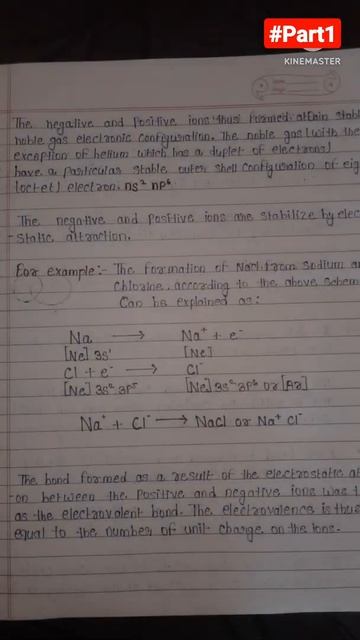 #Part1
KINEMASTER
The negative and positive ions thus formed attain stabl
noble gas electronic configuration. The noble gas (with the
exception of helium which has a duplet of electrons)
have a particular stable outer shell configuration of eig
(octet) electron. ns² np⁶
The negative and positive ions are stabilize by elec
-static attraction.
For example:- The formation of NaCl from sodium a
Chlorine, according to the above schem
Can be explained as:
Na ⟶ Na⁺ + e⁻
[Ne] 3s¹ [Ne]
Cl + e⁻ ⟶ Cl⁻
[Ne] 3s² 3p⁵ [Ne] 3s² 3p⁶ or [Ar]
Na⁺ + Cl⁻ ⟶ NaCl or Na⁺ Cl⁻
The bond formed as a result of the electrostatic at
-on between the positive and negative ions was t
as the electrovalent bond. The electrovalence is thus
equal to the number of unit charge on the ions.